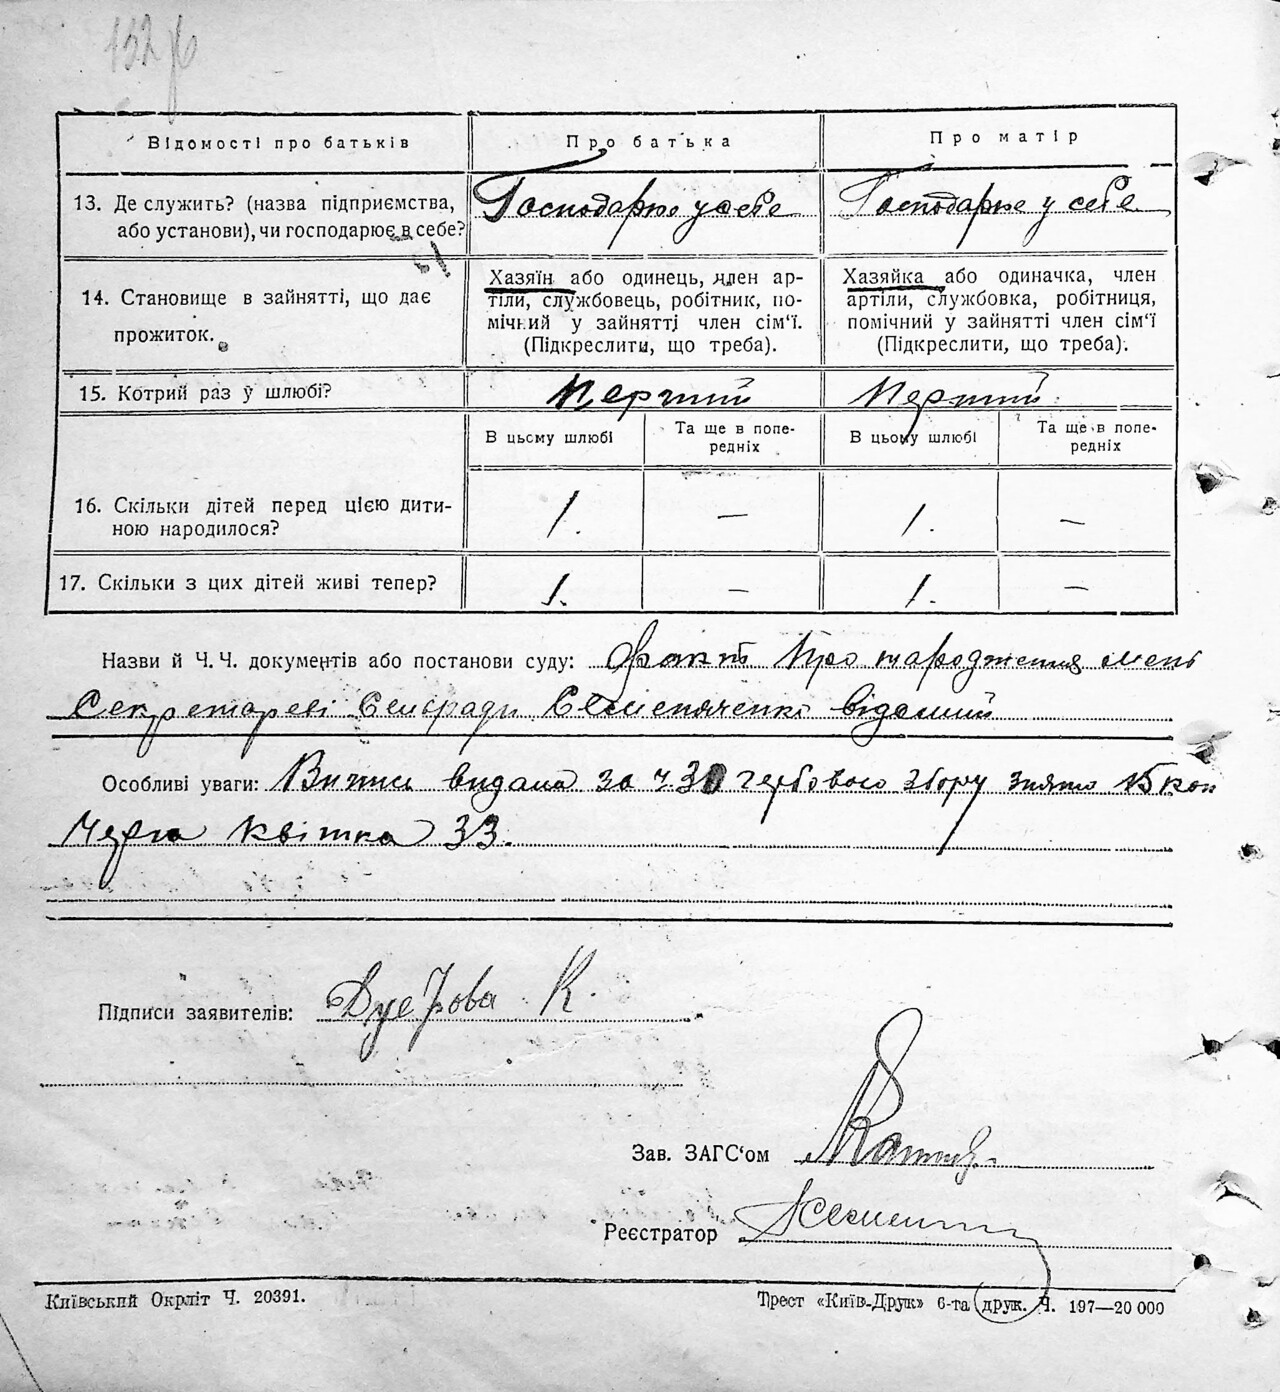 132
Відомості про батьків
Про батька
Про матір
13. Де служить? (назва підприємства,
або установи), чи господарює в себе?
Господарює у себе
Господарює у себе
14. Становище в зайнятті, що дає
прожиток.
Хазяїн або одинець, член ар-
тіли, службовець, робітник, по-
мічний у зайнятті член сім‘ї.
(Підкреслити, що треба).
Хазяйка або одиначка, член
артіли, службовка, робітниця,
помічний у зайнятті член сім‘ї
(Підкреслити, що треба).
15. Котрий раз у шлюбі?
Перший
Перший
В цьому шлюбі
Та ще в попе-
редніх
В цьому шлюбі
Та ще в попе-
редніх
16. Скільки дітей перед цією дити-
ною народилося?
1.
—
1.
—
17. Скільки з цих дітей живі тепер?
1.
—
1.
—
Назви й Ч. Ч. документів або постанови суду: Факт про народження мені
Секретареві Сельради відомий
Особливі уваги: Випис видана за ч. 30 гербового збору знято 15 коп
Черга квітка 33.
Підписи заявителів: К.
Зав. ЗАГС‘ом
Реєстратор
Київський Окрліт Ч. 20391.
Трест «Київ-Друк» 6-та друк. Ч. 197—20 000